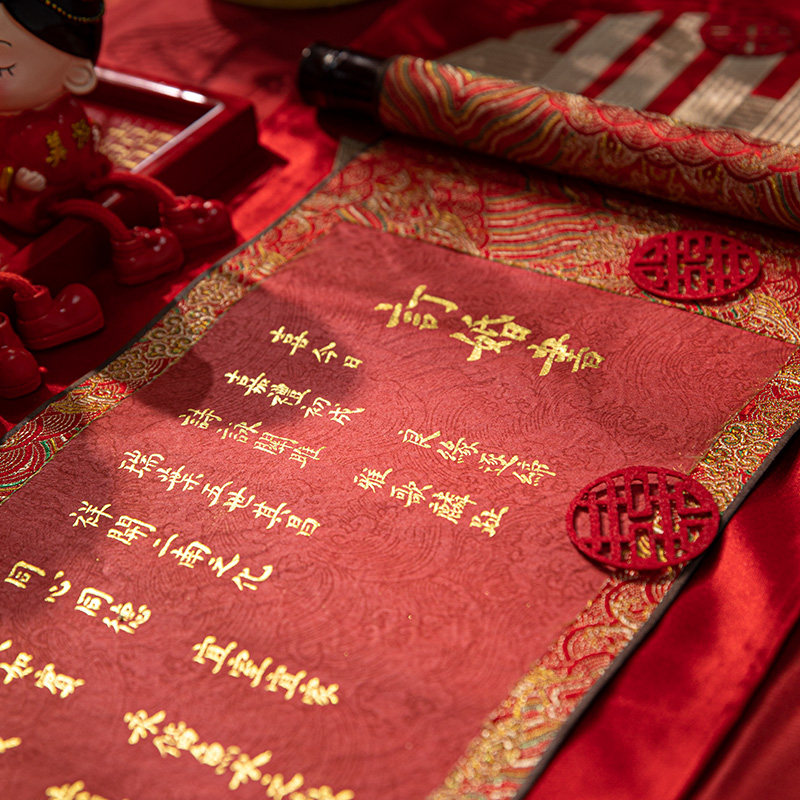 訂婚書
喜今日
嘉禮初成 良緣遂締
詩詠關雎 雅歌麟趾
瑞葉五世其昌
祥開二南之化
同心同德 宜室宜家
如賓 永諧魚水之
囍
囍